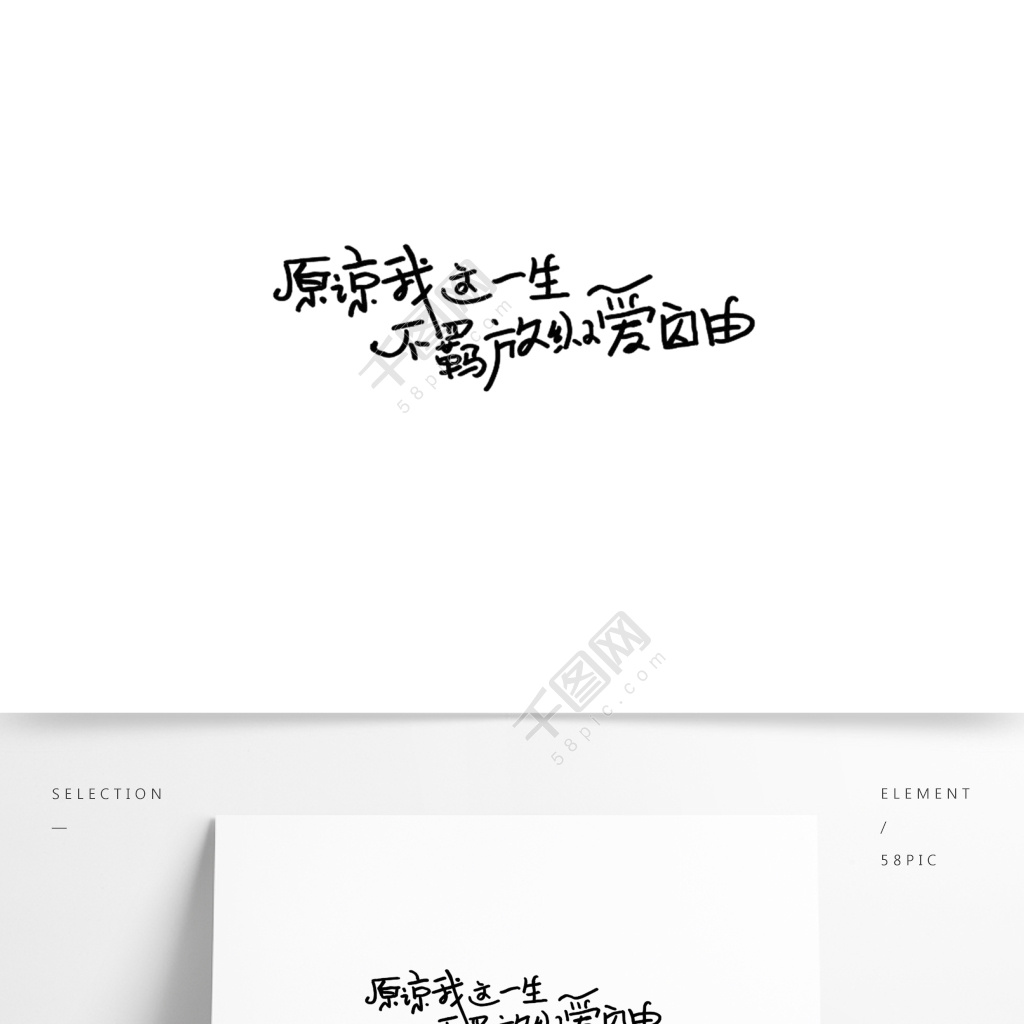 原谅我这一生
不羁放纵爱自由
千图网
58pic.com
千图网
58pic.com
SELECTION
—
ELEMENT
/
58PIC
原谅我这一生
不羁放纵爱自由